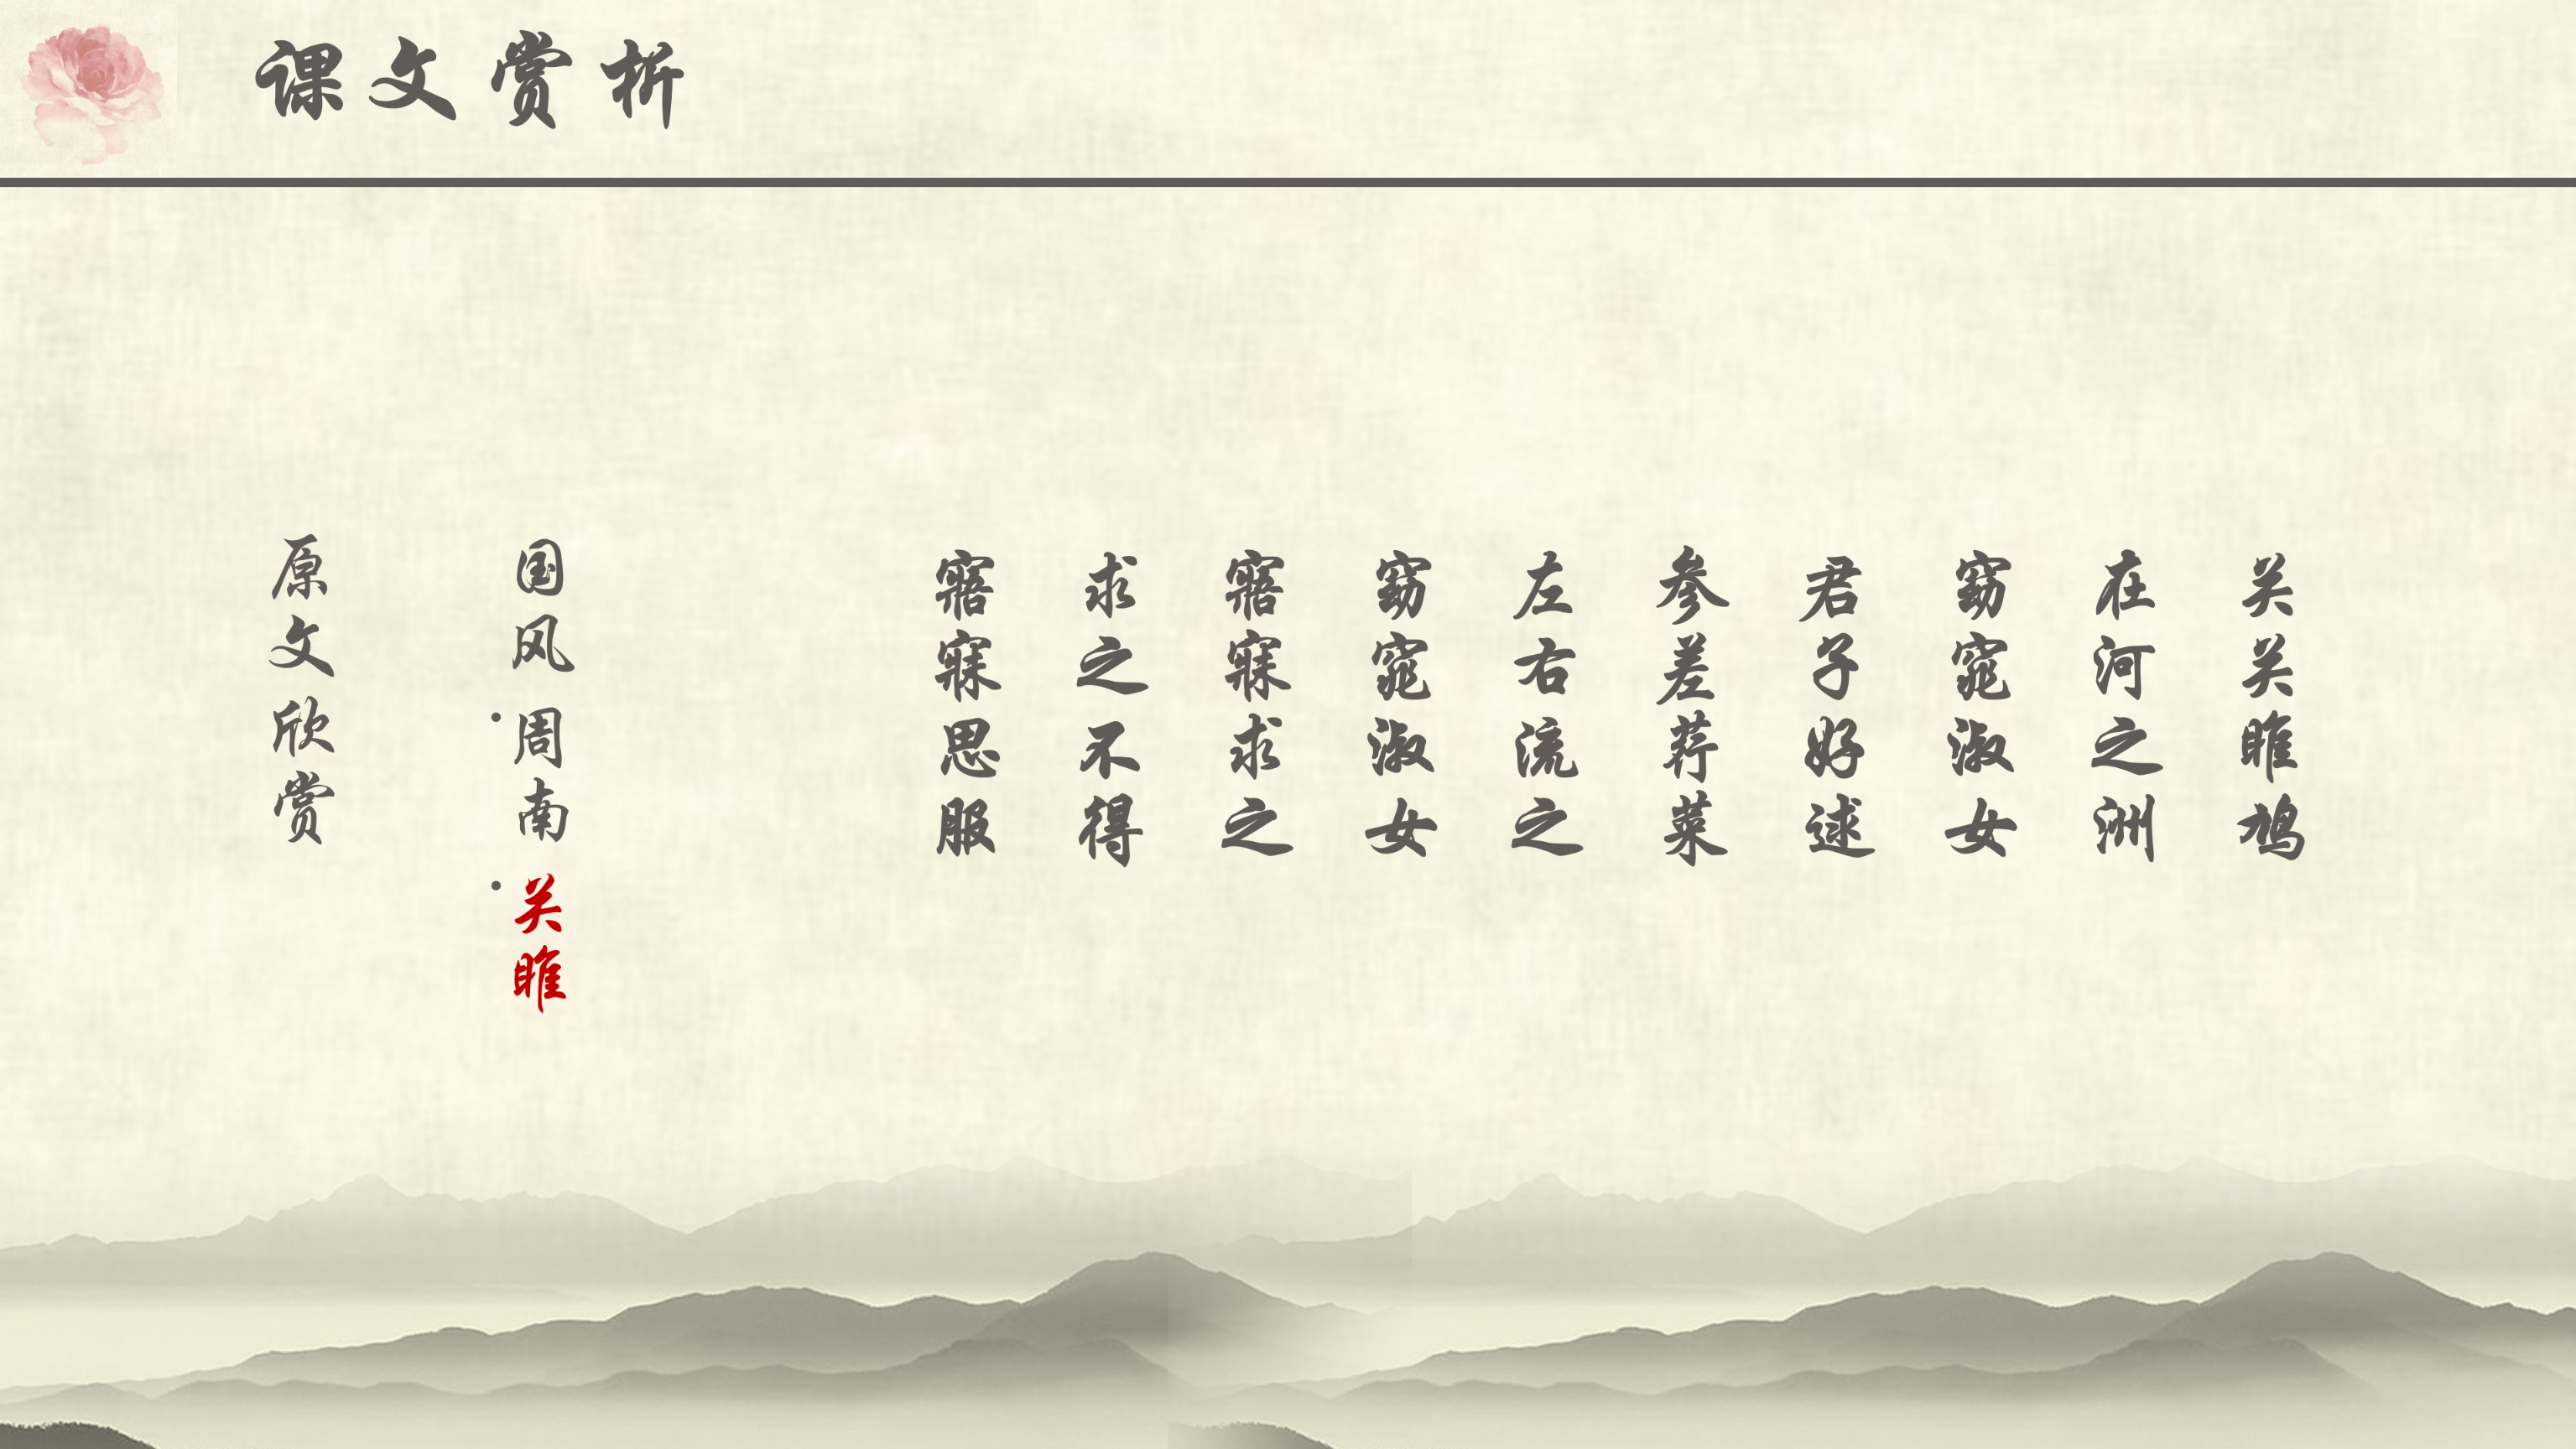 课文赏析
关关雎鸠
在河之洲
窈窕淑女
君子好逑
参差荇菜
左右流之
窈窕淑女
寤寐求之
求之不得
寤寐思服
国风·周南·关雎
原文欣赏